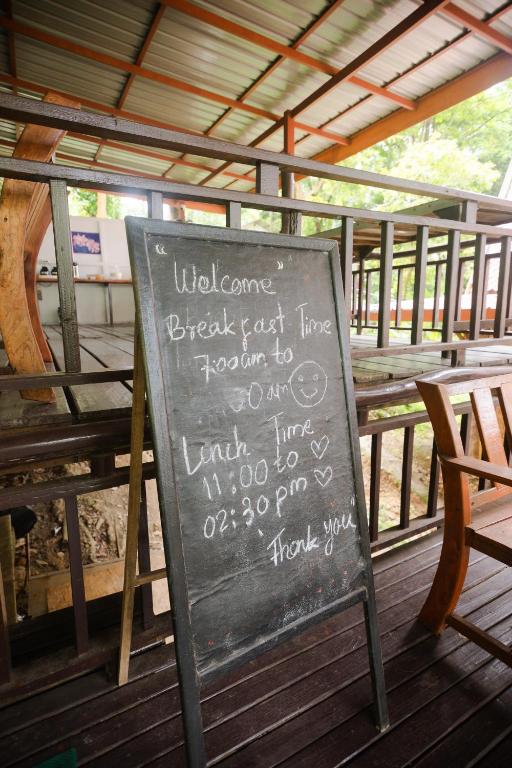 "Welcome"
Breakfast Time
7:00am to
:00am
Lunch Time
11:00 to
02:30 pm
"Thank you"